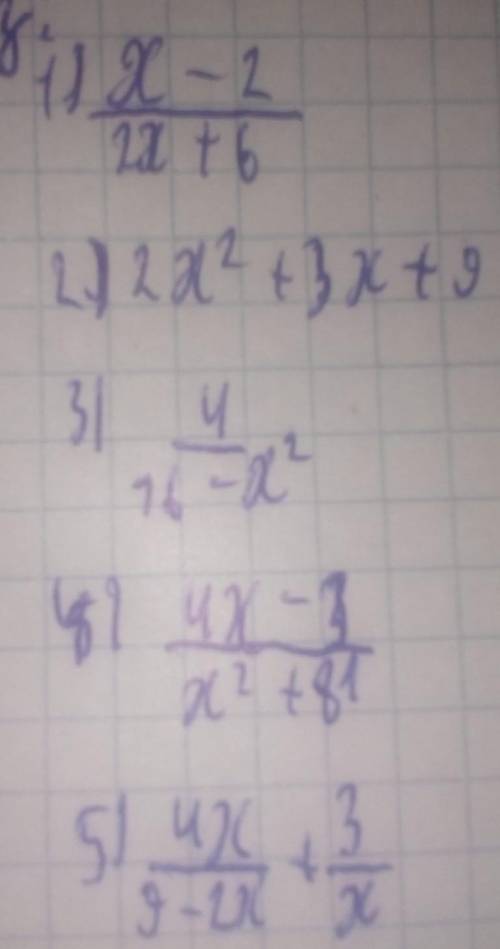 1) x - 2
2x + 6
2) 2x² + 3x + 9
3) 4
16 - x²
4) 4x - 3
x² + 81
5) 4x + 3
9 - 2x x